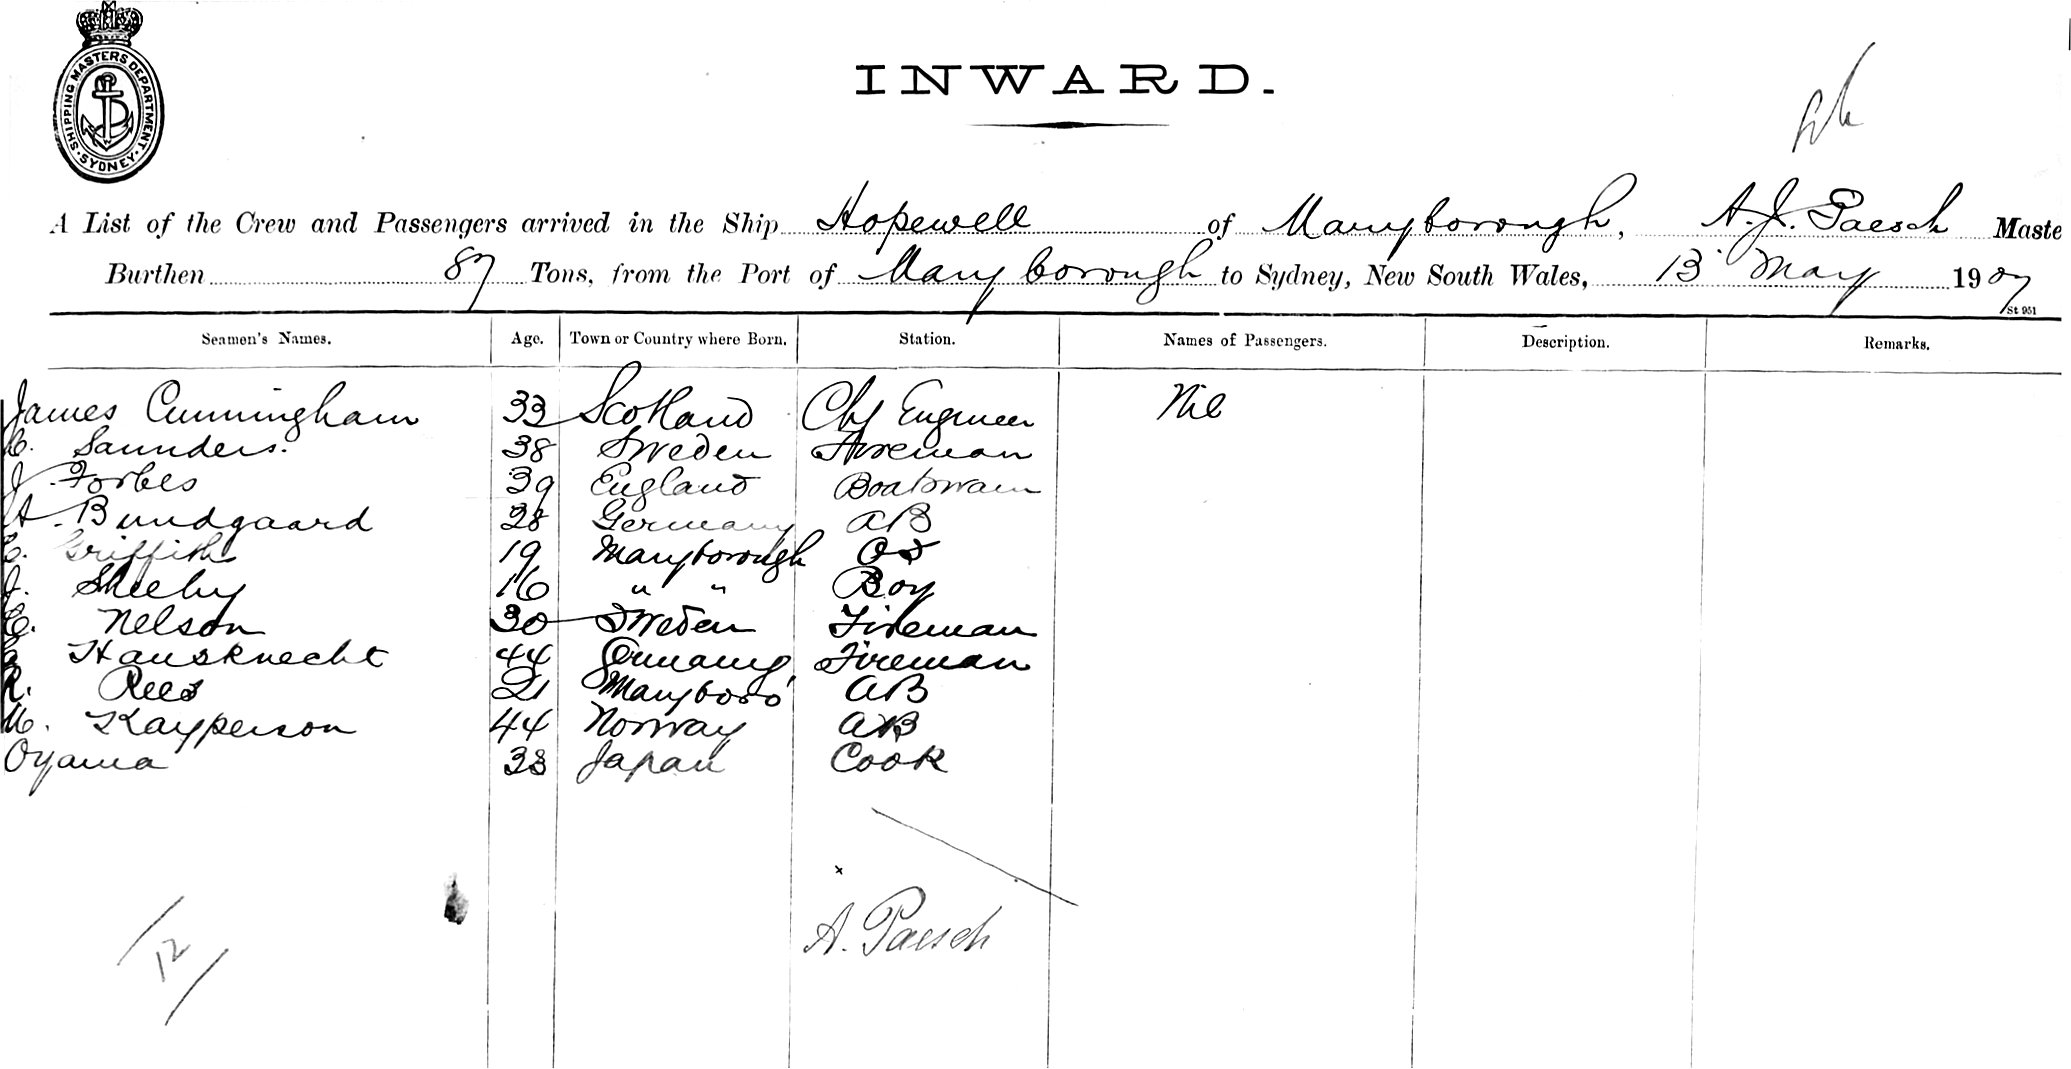 SHIPPING MASTERS DEPARTMENT
SYDNEY
INWARD.
A List of the Crew and Passengers arrived in the Ship Hopewell of Maryborough, A. J. Paesch Maste
Burthen 87 Tons, from the Port of Maryborough to Sydney, New South Wales, 13 May 1907
St 951
Seamen's Names. Age. Town or Country where Born. Station. Names of Passengers. Description. Remarks.
James Cunningham 33 Scotland Chf Engineer Nil
C. Saunders. 38 Sweden Fireman
J. Forbes 39 England Boatswain
A. Bundgaard 28 Germany AB
C. Griffith 19 Maryborough OS
J. Sheehy 16 " " Boy
C. Nelson 30 Sweden Fireman
Hausknecht 44 Germany Fireman
R. Rees 21 Maryboro' AB
M. Kayperson 44 Norway AB
Oyama 33 Japan Cook
x
A. Paesch
12